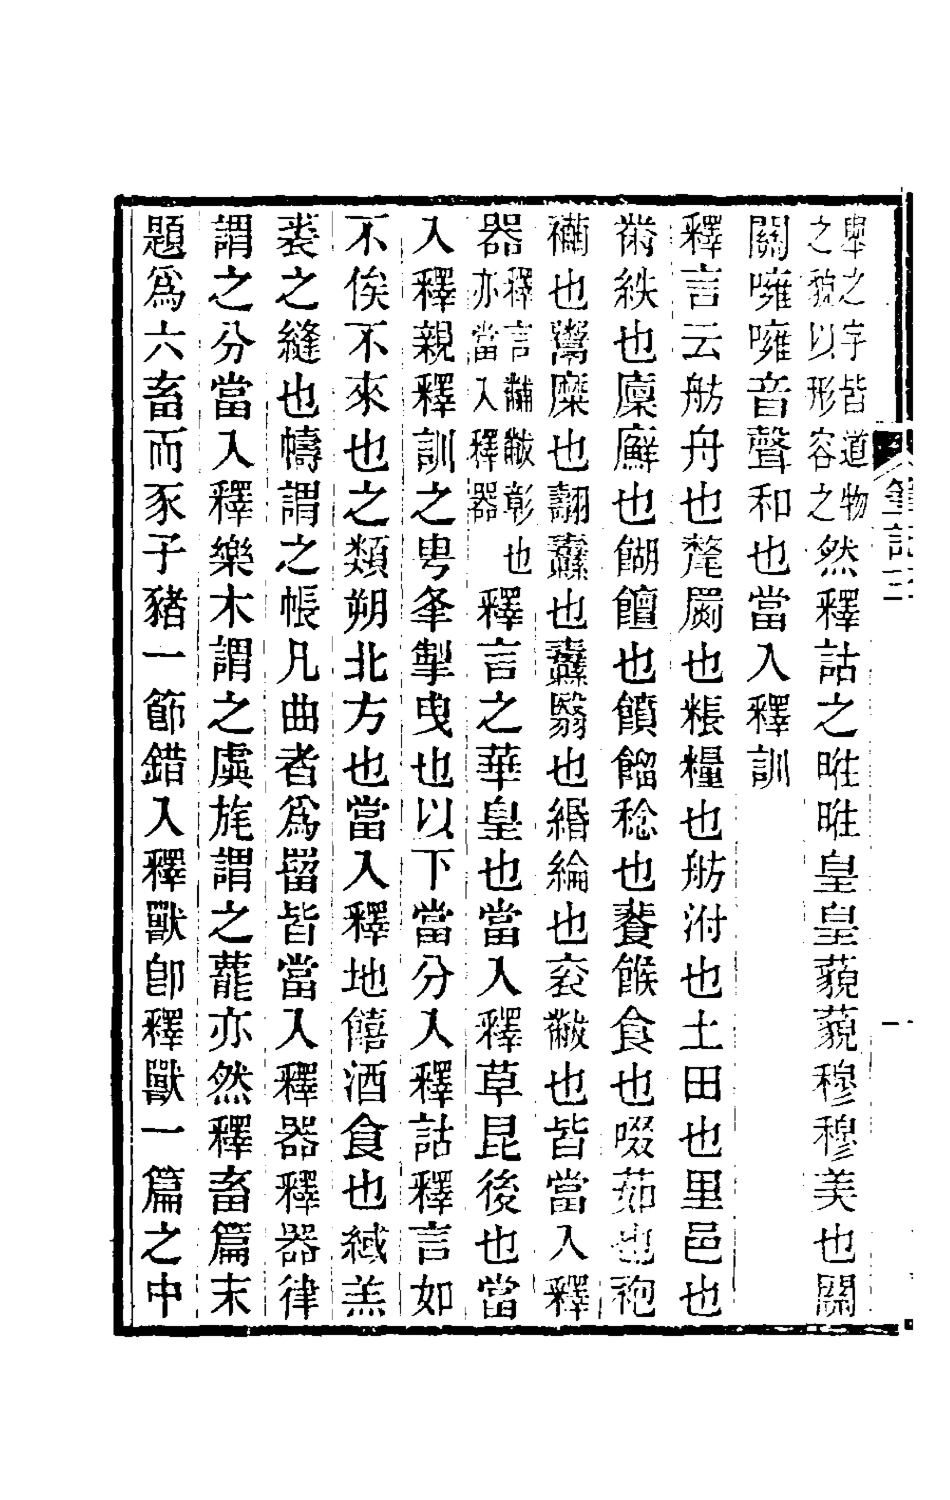 畢之字皆道物
之貌以形容之
然釋詁之暀暀皇皇藐藐穆穆美也關
關噰噰音聲和也當入釋訓
釋言云舫舟也氂罽也粻糧也舫泭也土田也里邑也
黹紩也廩廯也餬饘也饙餾稔也餥餱食也啜茹也袍
襺也鬻糜也翢纛也纛翳也緡綸也衮黻也皆當入釋
器
釋言黼黻彰也
亦當入釋器
釋言之華皇也當入釋草昆後也當
入釋親釋訓之甹夆掣曳也以下當分入釋詁釋言如
不俟不來也之類朔北方也當入釋地饎酒食也緎羔
裘之縫也幬謂之帳凡曲者爲罶皆當入釋器釋器律
謂之分當入釋樂木謂之虡旄謂之藣亦然釋畜篇末
題爲六畜而豕子豬一節錯入釋獸卽釋獸一篇之中
筆記二
一